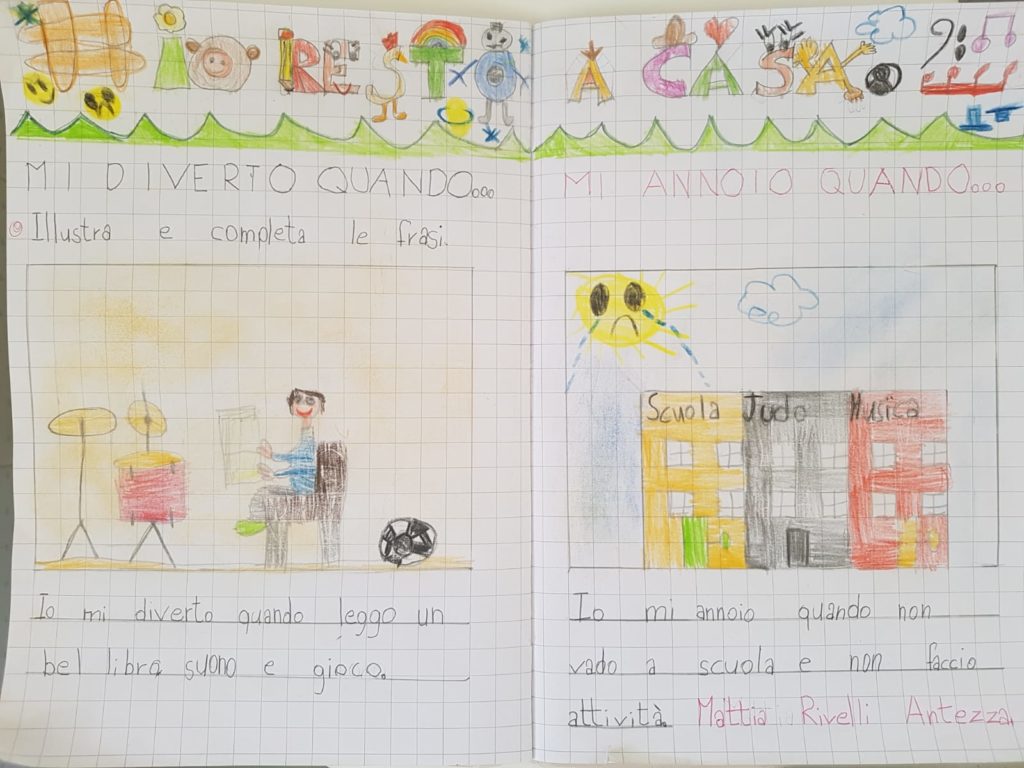 #IO RESTO A CASA
MI DIVERTO QUANDO...
Illustra e completa le frasi.
Io mi diverto quando leggo un
bel libro suono e gioco.
MI ANNOIO QUANDO...
Scuola Judo Musica
Io mi annoio quando non
vado a scuola e non faccio
attività. Mattia Rivelli Antezza.